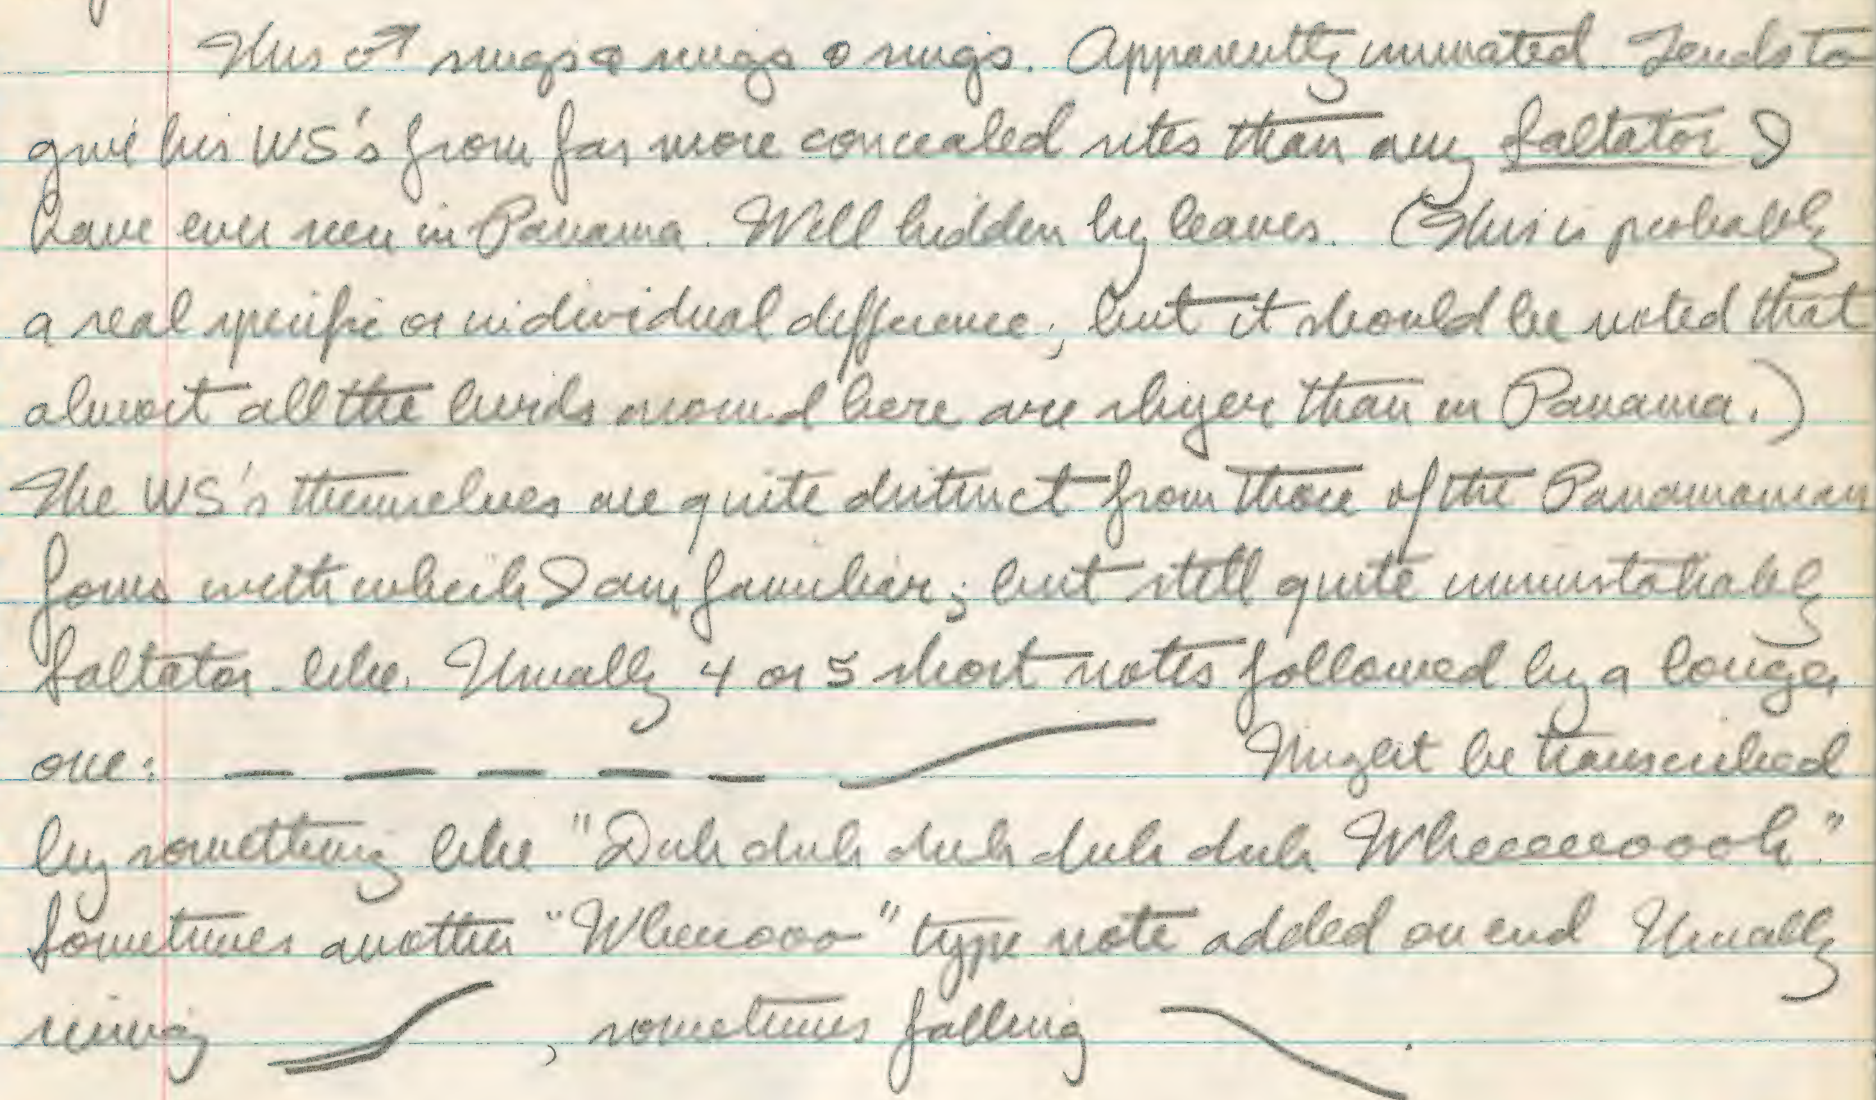 This ♂ sings & sings & sings. Apparently unmated. Tends to
give his WS's from far more concealed sites than any Saltator I
have ever seen in Panama. Well hidden by leaves. (This is probably
a real specific or individual difference, but it should be noted that
almost all the birds around here are shyer than in Panama.)
The WS's themselves are quite distinct from those of the Panamanian
forms with which I am familiar; but still quite unmistakably
Saltator-like. Usually 4 or 5 short notes followed by a longer
one: — — — — — Might be transcribed
by something like "Duh duh duh duh duh Wheeeeeoooh"
Sometimes another "Wheeooo" type note added on end Usually
rising , sometimes falling .